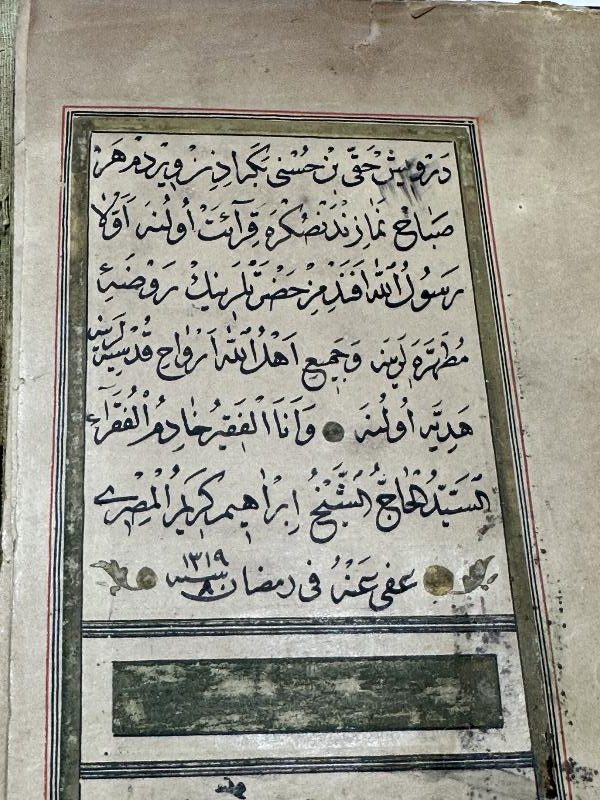 دَرْوِيشْ حَقِّى بْنِ حُسْنِى بَكَه اِذِنْ وِيرْدِمْ هَرْ
صَبَاحْ نَمَازِنْدَنْصُكْرَه قِرَآئَتْ اُولُنَه اَوَّلَا
رَسُولُ اللّٰه اَفَنْدِمِزْ حَضْرَتْلَرِينِكْ رَوْضَهِٔ
مُطَهَّرَه لَرِينَه وَجَمِيعِ اَهْلُ اللّٰه اَرْوَاحِ قُدْسِيَّه لَرِينَه
هَدِيَّه اُولُنَه وَاَنَا الْفَقِيرُ خَادِمُ الْفُقَرَآءِ
السَّيِّدُ الْحَاجُّ الشَّيْخُ اِبْرَاهِيمْ كَرِيمُ الْمِصْرِى
عفى عَنْهُ فى رمضان ٨ سنه ١٣١٩